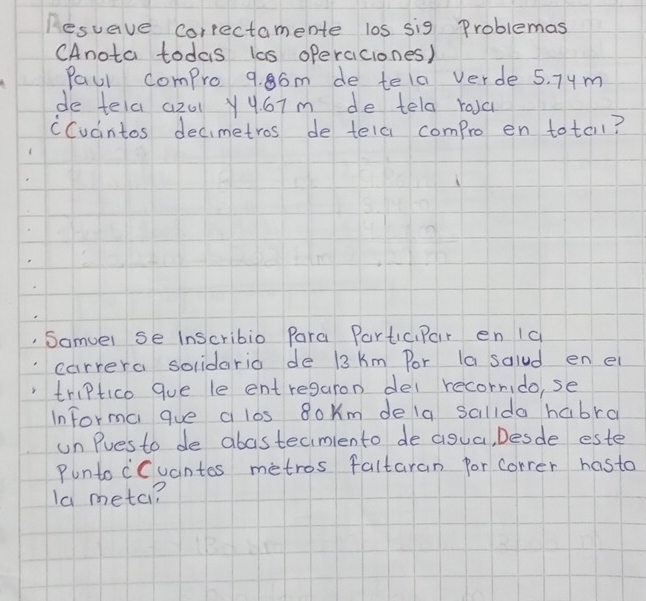 Resuelve correctamente los sig Problemas
(Anota todas las operaciones)
Paul compro 9.86m de tela verde 5.74m
de tela azul y 4.67m de tela roja
¿Cuántos decimetros de tela compro en total?
Samuel se inscribio Para Participar en la
carrera solidaria de 13 Km Por la salud en el
triptico que le entregaron del recorrido, se
informa que a los 80Km de la salida habra
un Puesto de abastecimiento de agua. Desde este
Punto ¿Cuantos métros faltaran Por correr hasta
la meta?